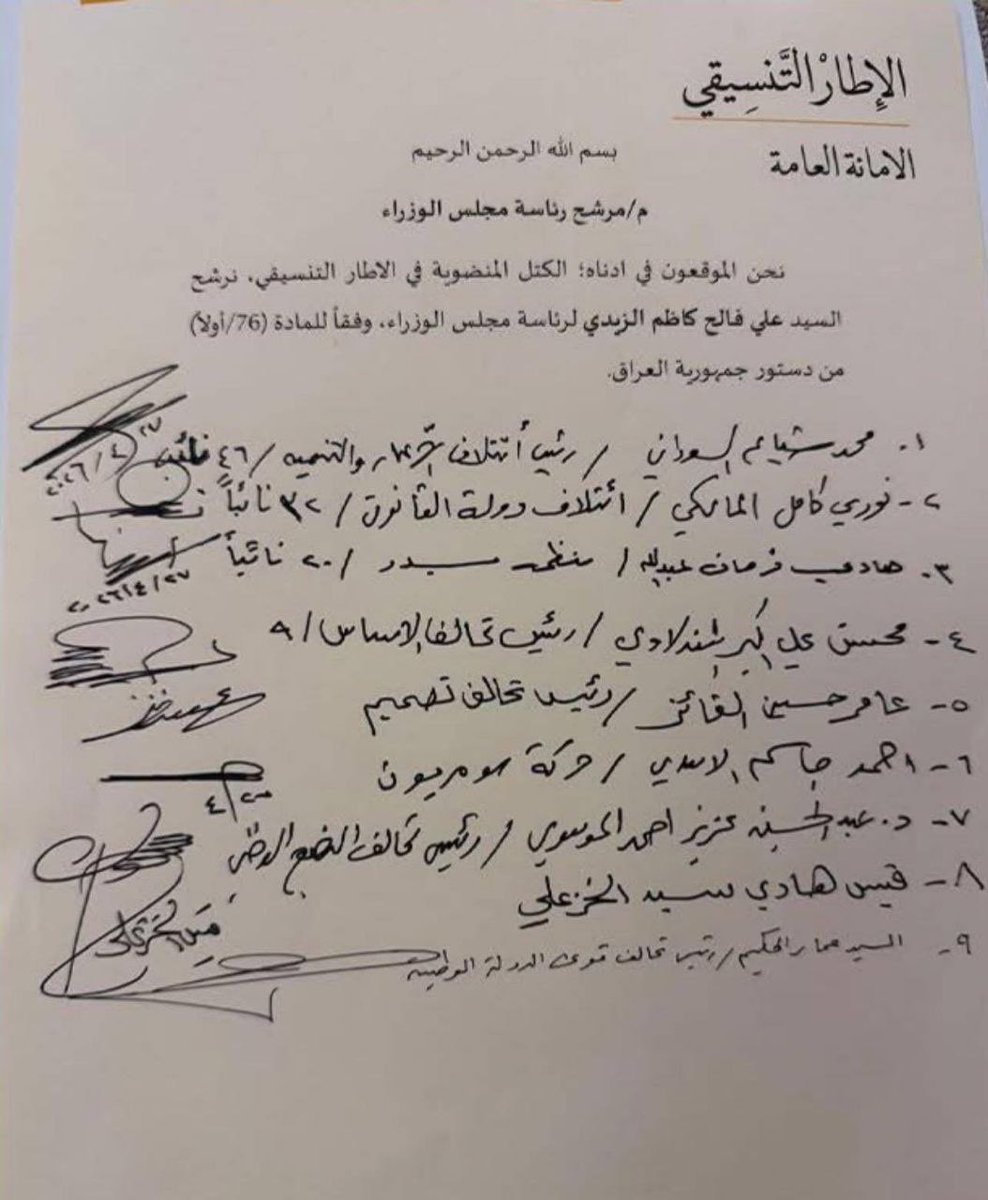 الإِطارْ التَّنسِيقي
الامانة العامة
بسم الله الرحمن الرحيم
م/مرشح رئاسة مجلس الوزراء
نحن الموقعون في ادناه؛ الكتل المنضوية في الاطار التنسيقي، نرشح
السيد علي فالح كاظم الزيدي لرئاسة مجلس الوزراء، وفقاً للمادة (76/أولاً)
من دستور جمهورية العراق.
١. محمد شياع السوداني / رئيس أئتلاف والتنميه / ٤٦ نائب
٢٠٢٦/٤/٢٧
٢- نوري كامل المالكي / ائتلاف دولة القانون / ٣٢ نائباً
٣. هادي فرمان عبدالله / منظمة بدر / ٢٠ نائباً
٢٠٢٦/٤/٢٧
٤- محسن علي اكبر / رئيس تحالف الاساس / ٩
٥- عامر حسين الفائز / رئيس تحالف تصميم
٦- احمد جاسم الاسدي / حركة سومريون
٧- د. عبدالحسين عزيز احمد الموسوي / رئيس تحالف النهج الوطني
٨- قيس هادي سيد الخزعلي
٩- السيد عمار الحكيم / رئيس تحالف قوى الدولة الوطنية